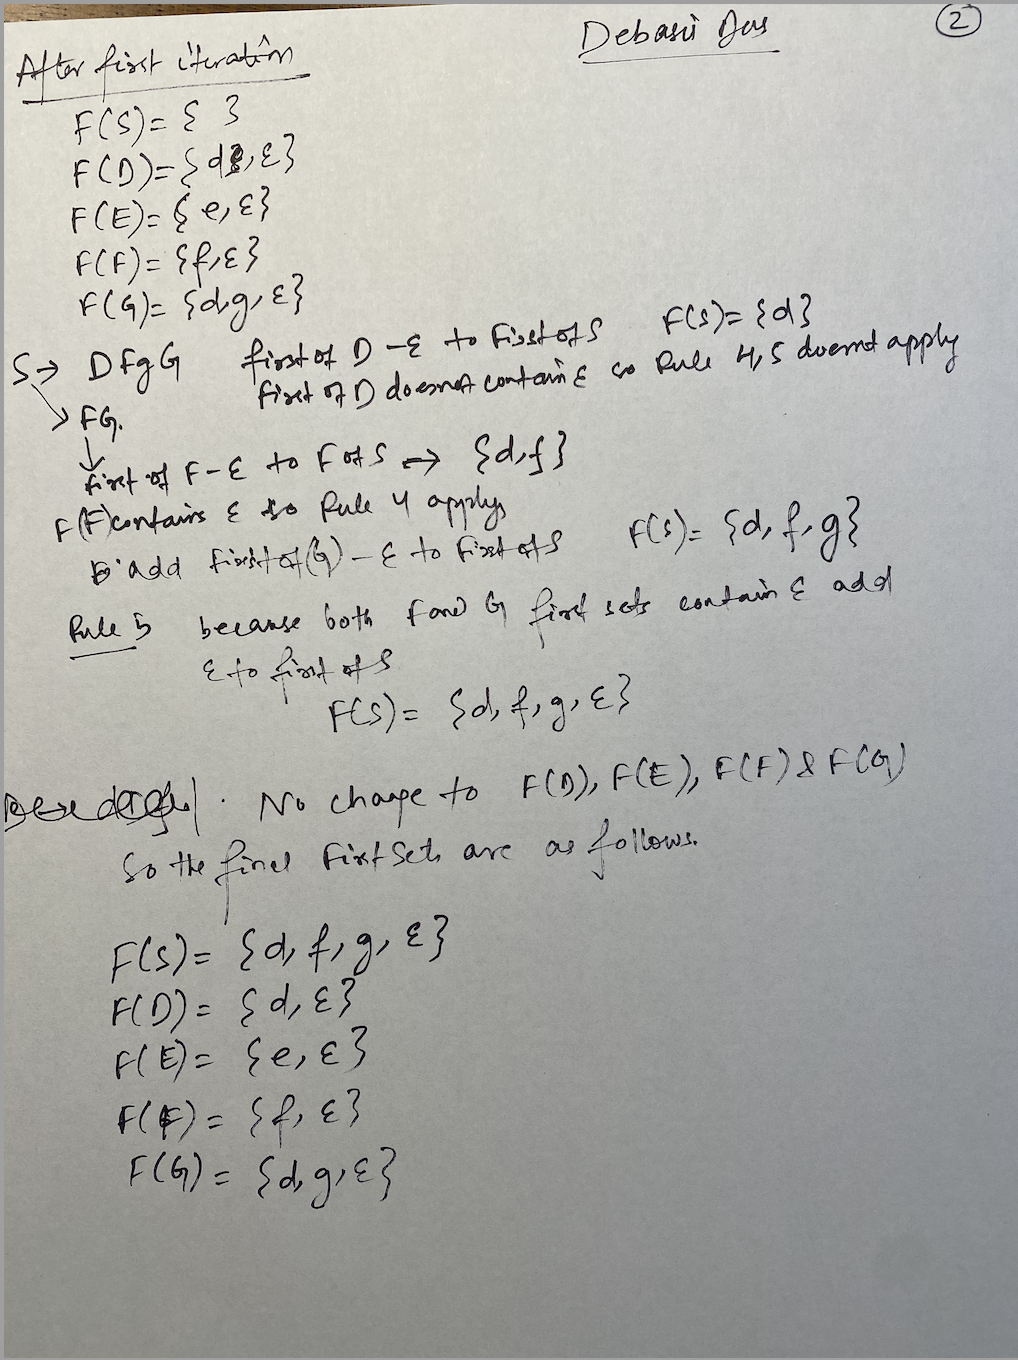 Debasis Das
2
After first iteration
F(S)= { }
F(D)={d, ε}
F(E)= {e, ε}
F(F)= {f, ε}
F(G)= {d,g, ε}
S → DfgG first of D - ε to First of S F(S)= {d}
First of D doesnot contain ε so Rule 4,5 doesnt apply
→ FG.
First of F - ε to F of S → {d,f}
F(F) contains ε so Rule 4 apply,
add first of (G) - ε to First of S F(S)= {d, f, g}
Rule 5 because both F and G first sets contain ε add
ε to first of S
F(S)= {d, f, g, ε}
No change to F(D), F(E), F(F) & F(G)
So the final First Sets are as follows.
F(S)= {d, f, g, ε}
F(D)= {d, ε}
F(E)= {e, ε}
F(F)= {f, ε}
F(G)= {d, g, ε}